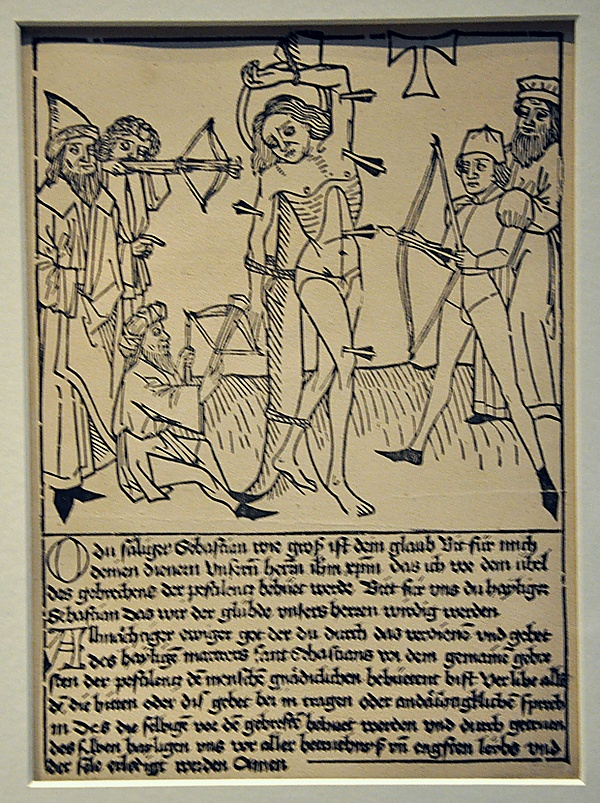 O du säliger Sebastian wie groß ist dein glaub Bit für mich
deinen dienern Unsern herrn ihm xpm das ich vor dem übel
des gebrechens der pestilencz behüet werde Bitt für uns du hayliger
Sebastian Das wir der glübde unsers herren wirdig werden
Allmächtiger ewiger got der du durch das verdienen und gebet
des hayligen marterers Sant Sebastians vor dem gemainē gebre
sten der pestilencz dē menschē gnädiclichen behüettent bist Verlihe allē
dē die bitten oder diß gebet bei in tragen oder andächtigklichē sprech
in Das die selbigē vor dē gebrestē behüet werden und durch getruen
des selben hayligen uns vor aller betrüebnuß uñ engsten leibs und
der sele erlediget werden Amen